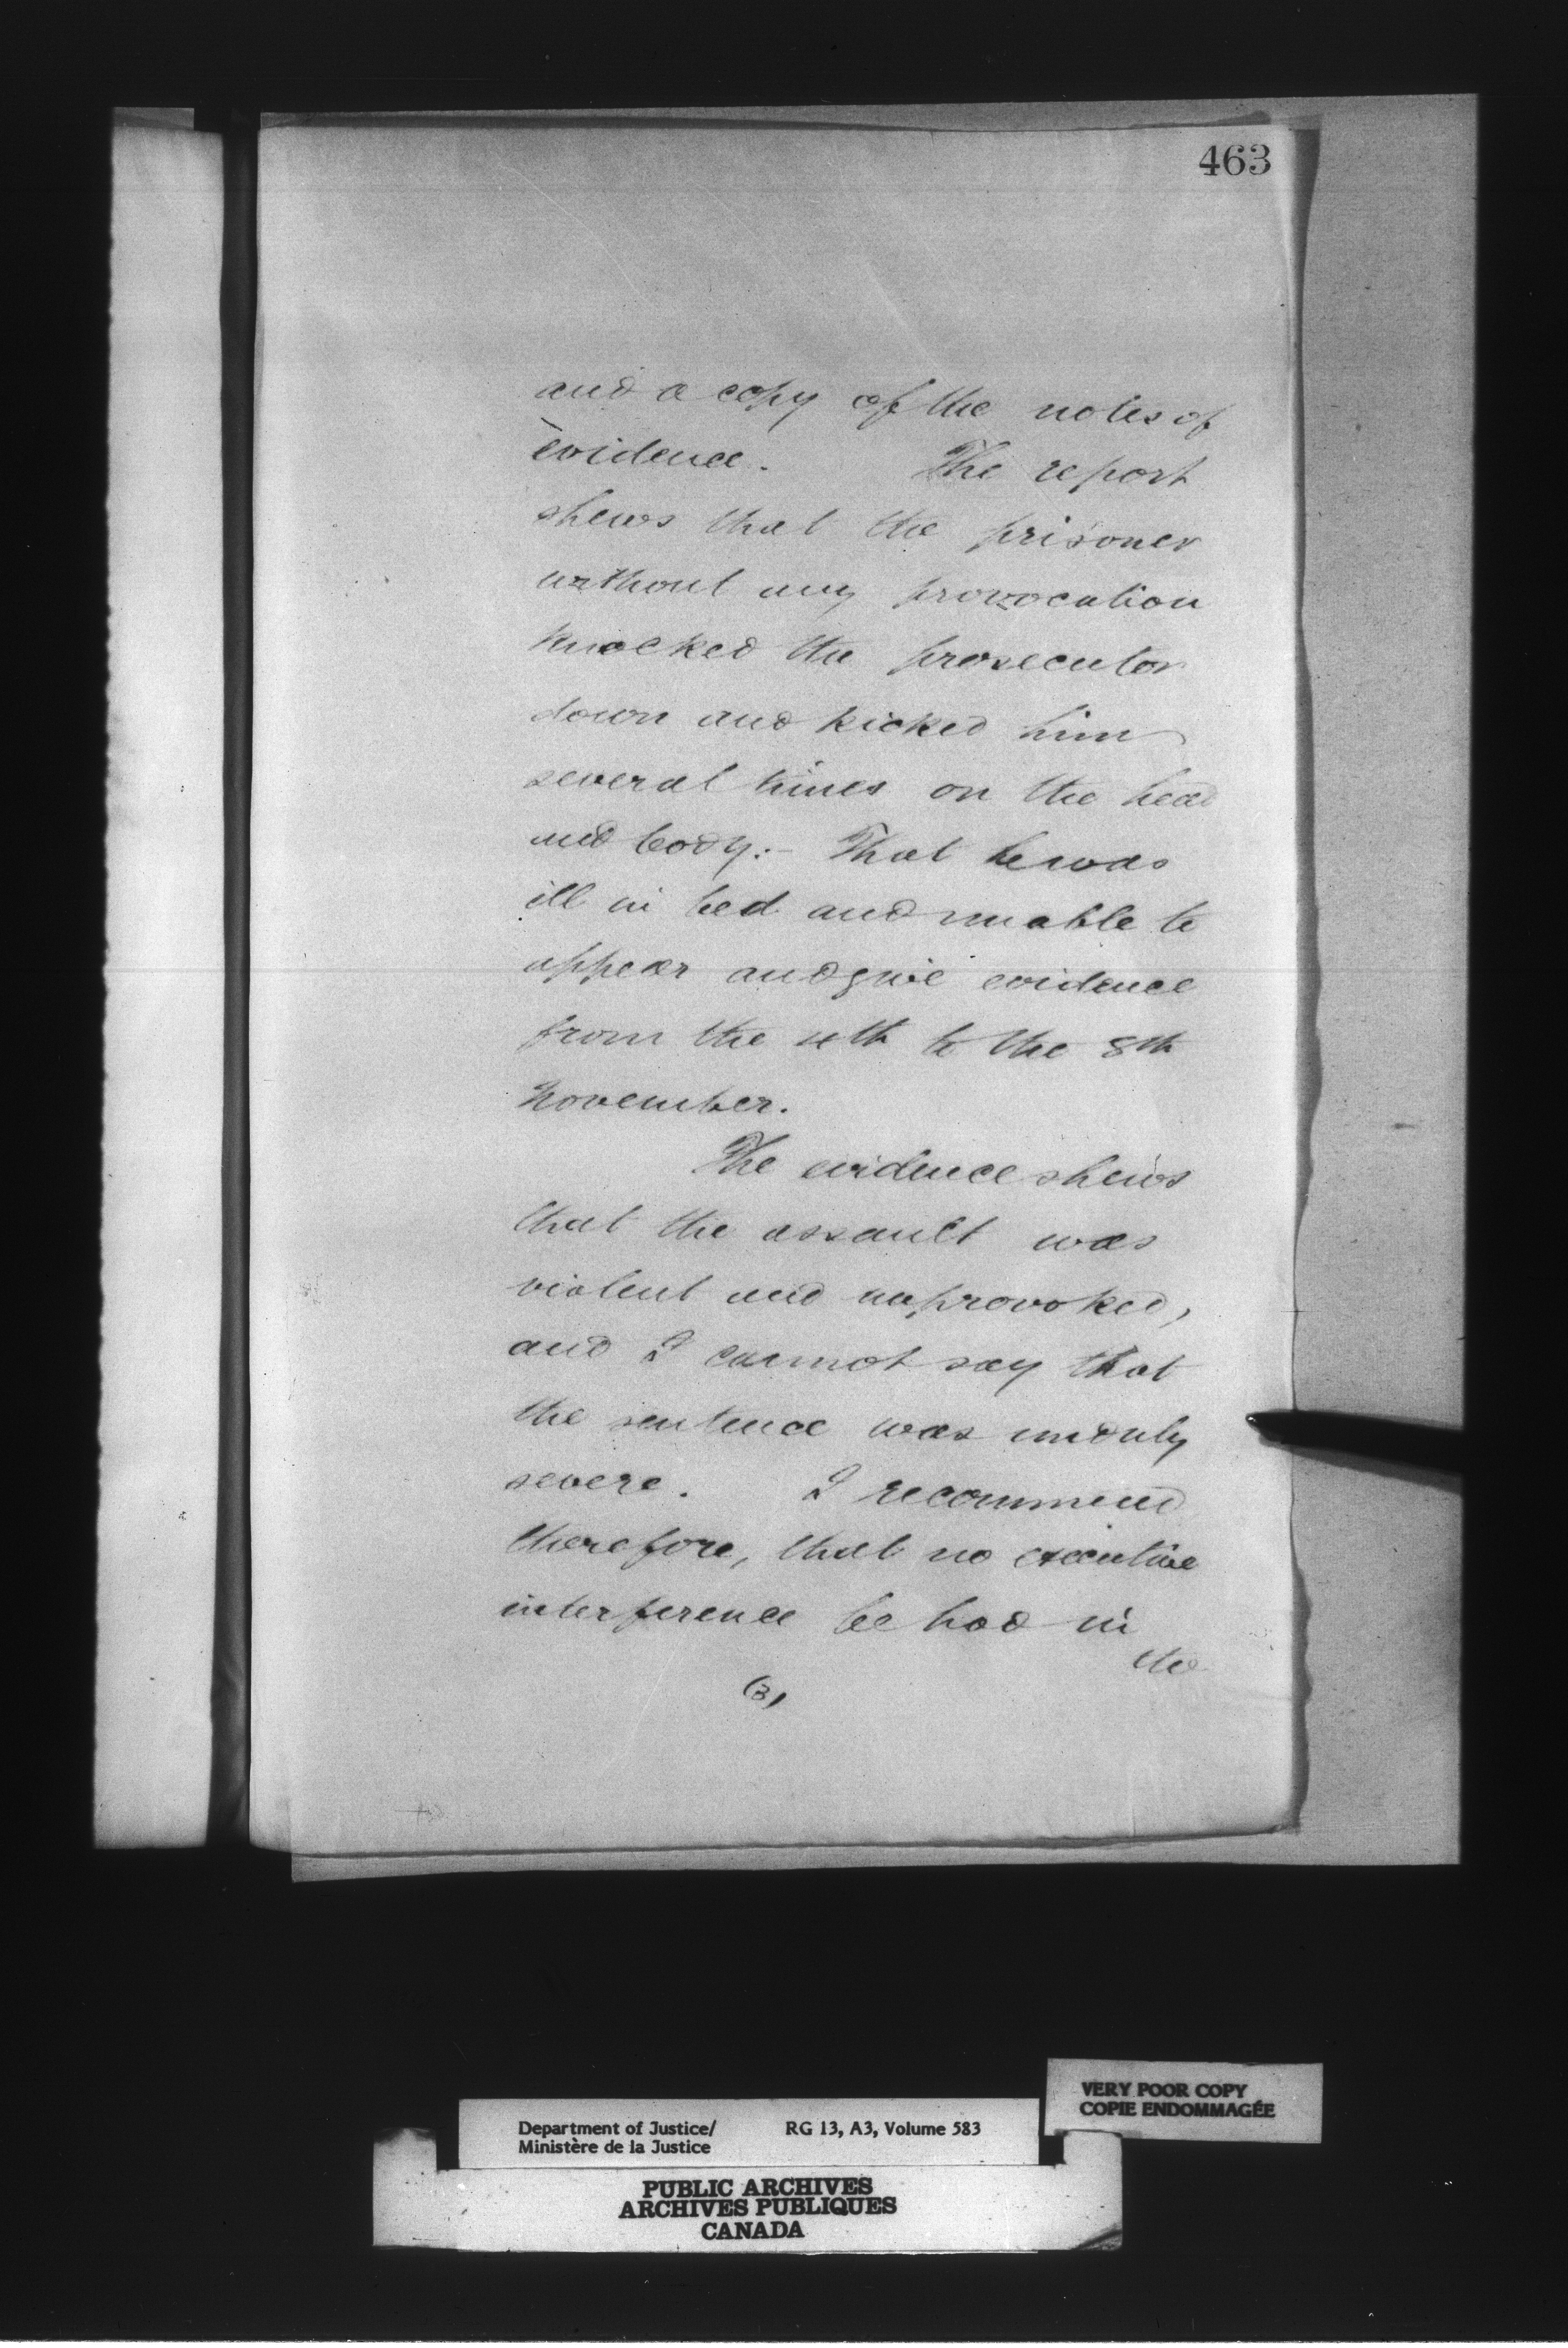 463
and a copy of the notes of
evidence. The report
shews that the prisoner
without any provocation
knocked the prosecutor
down and kicked him
several times on the head
and body:- That he was
ill in bed and unable to
appear and give evidence
from the 4th to the 8th
November.
The evidence shews
that the assault was
violent and unprovoked,
and I cannot say that
the sentence was unduly
severe. I recommend
therefore, that no executive
interference be had in
the
(3)
VERY POOR COPY
COPIE ENDOMMAGÉE
Department of Justice/ RG 13, A3, Volume 583
Ministère de la Justice
PUBLIC ARCHIVES
ARCHIVES PUBLIQUES
CANADA